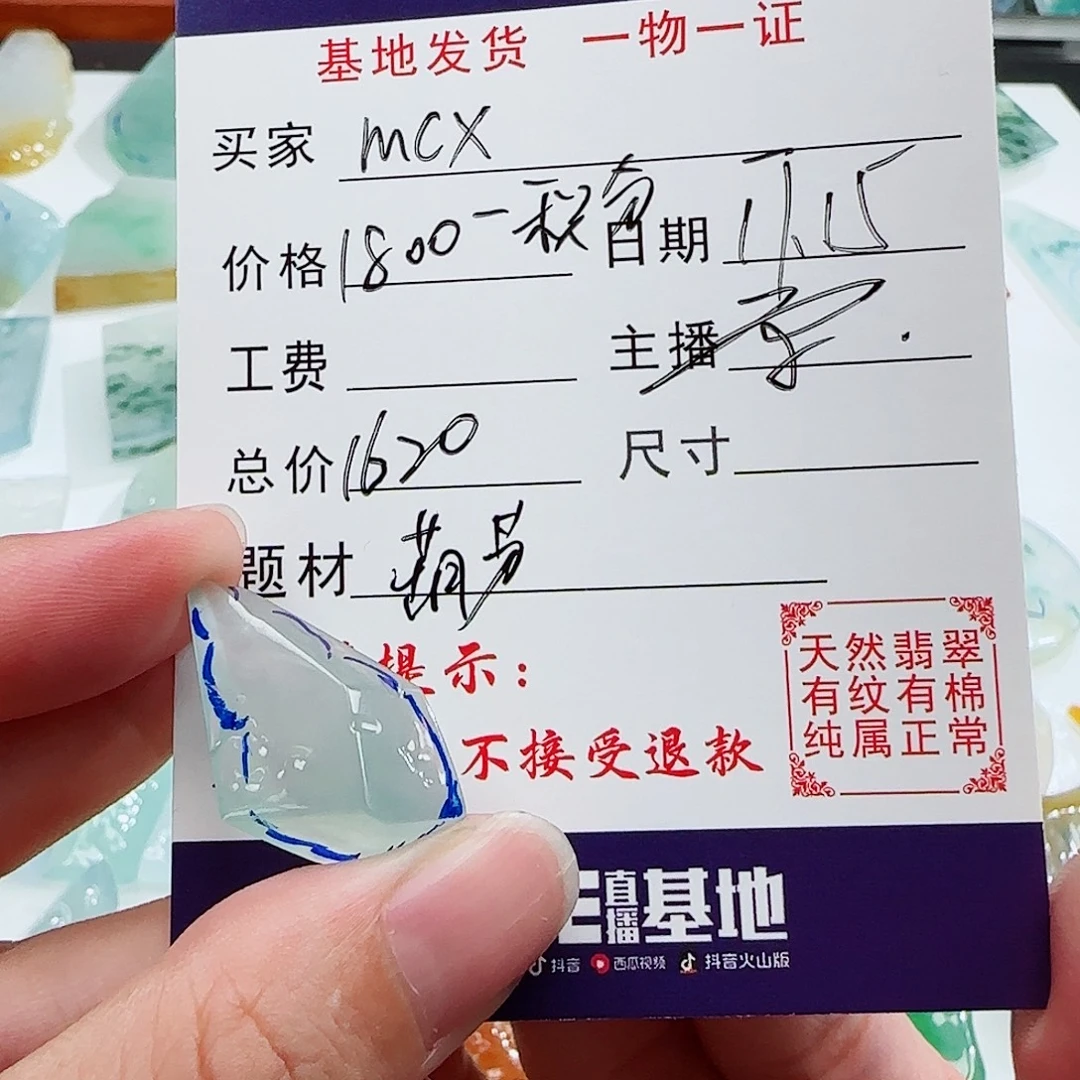 基地发货 一物一证
买家 MCX
价格 1800 日期 11.15
工费 主播
总价 1620 尺寸
题材 葫芦
提示:
不接受退款
天然翡翠
有纹有棉
纯属正常
直播基地
抖音 西瓜视频 抖音火山版